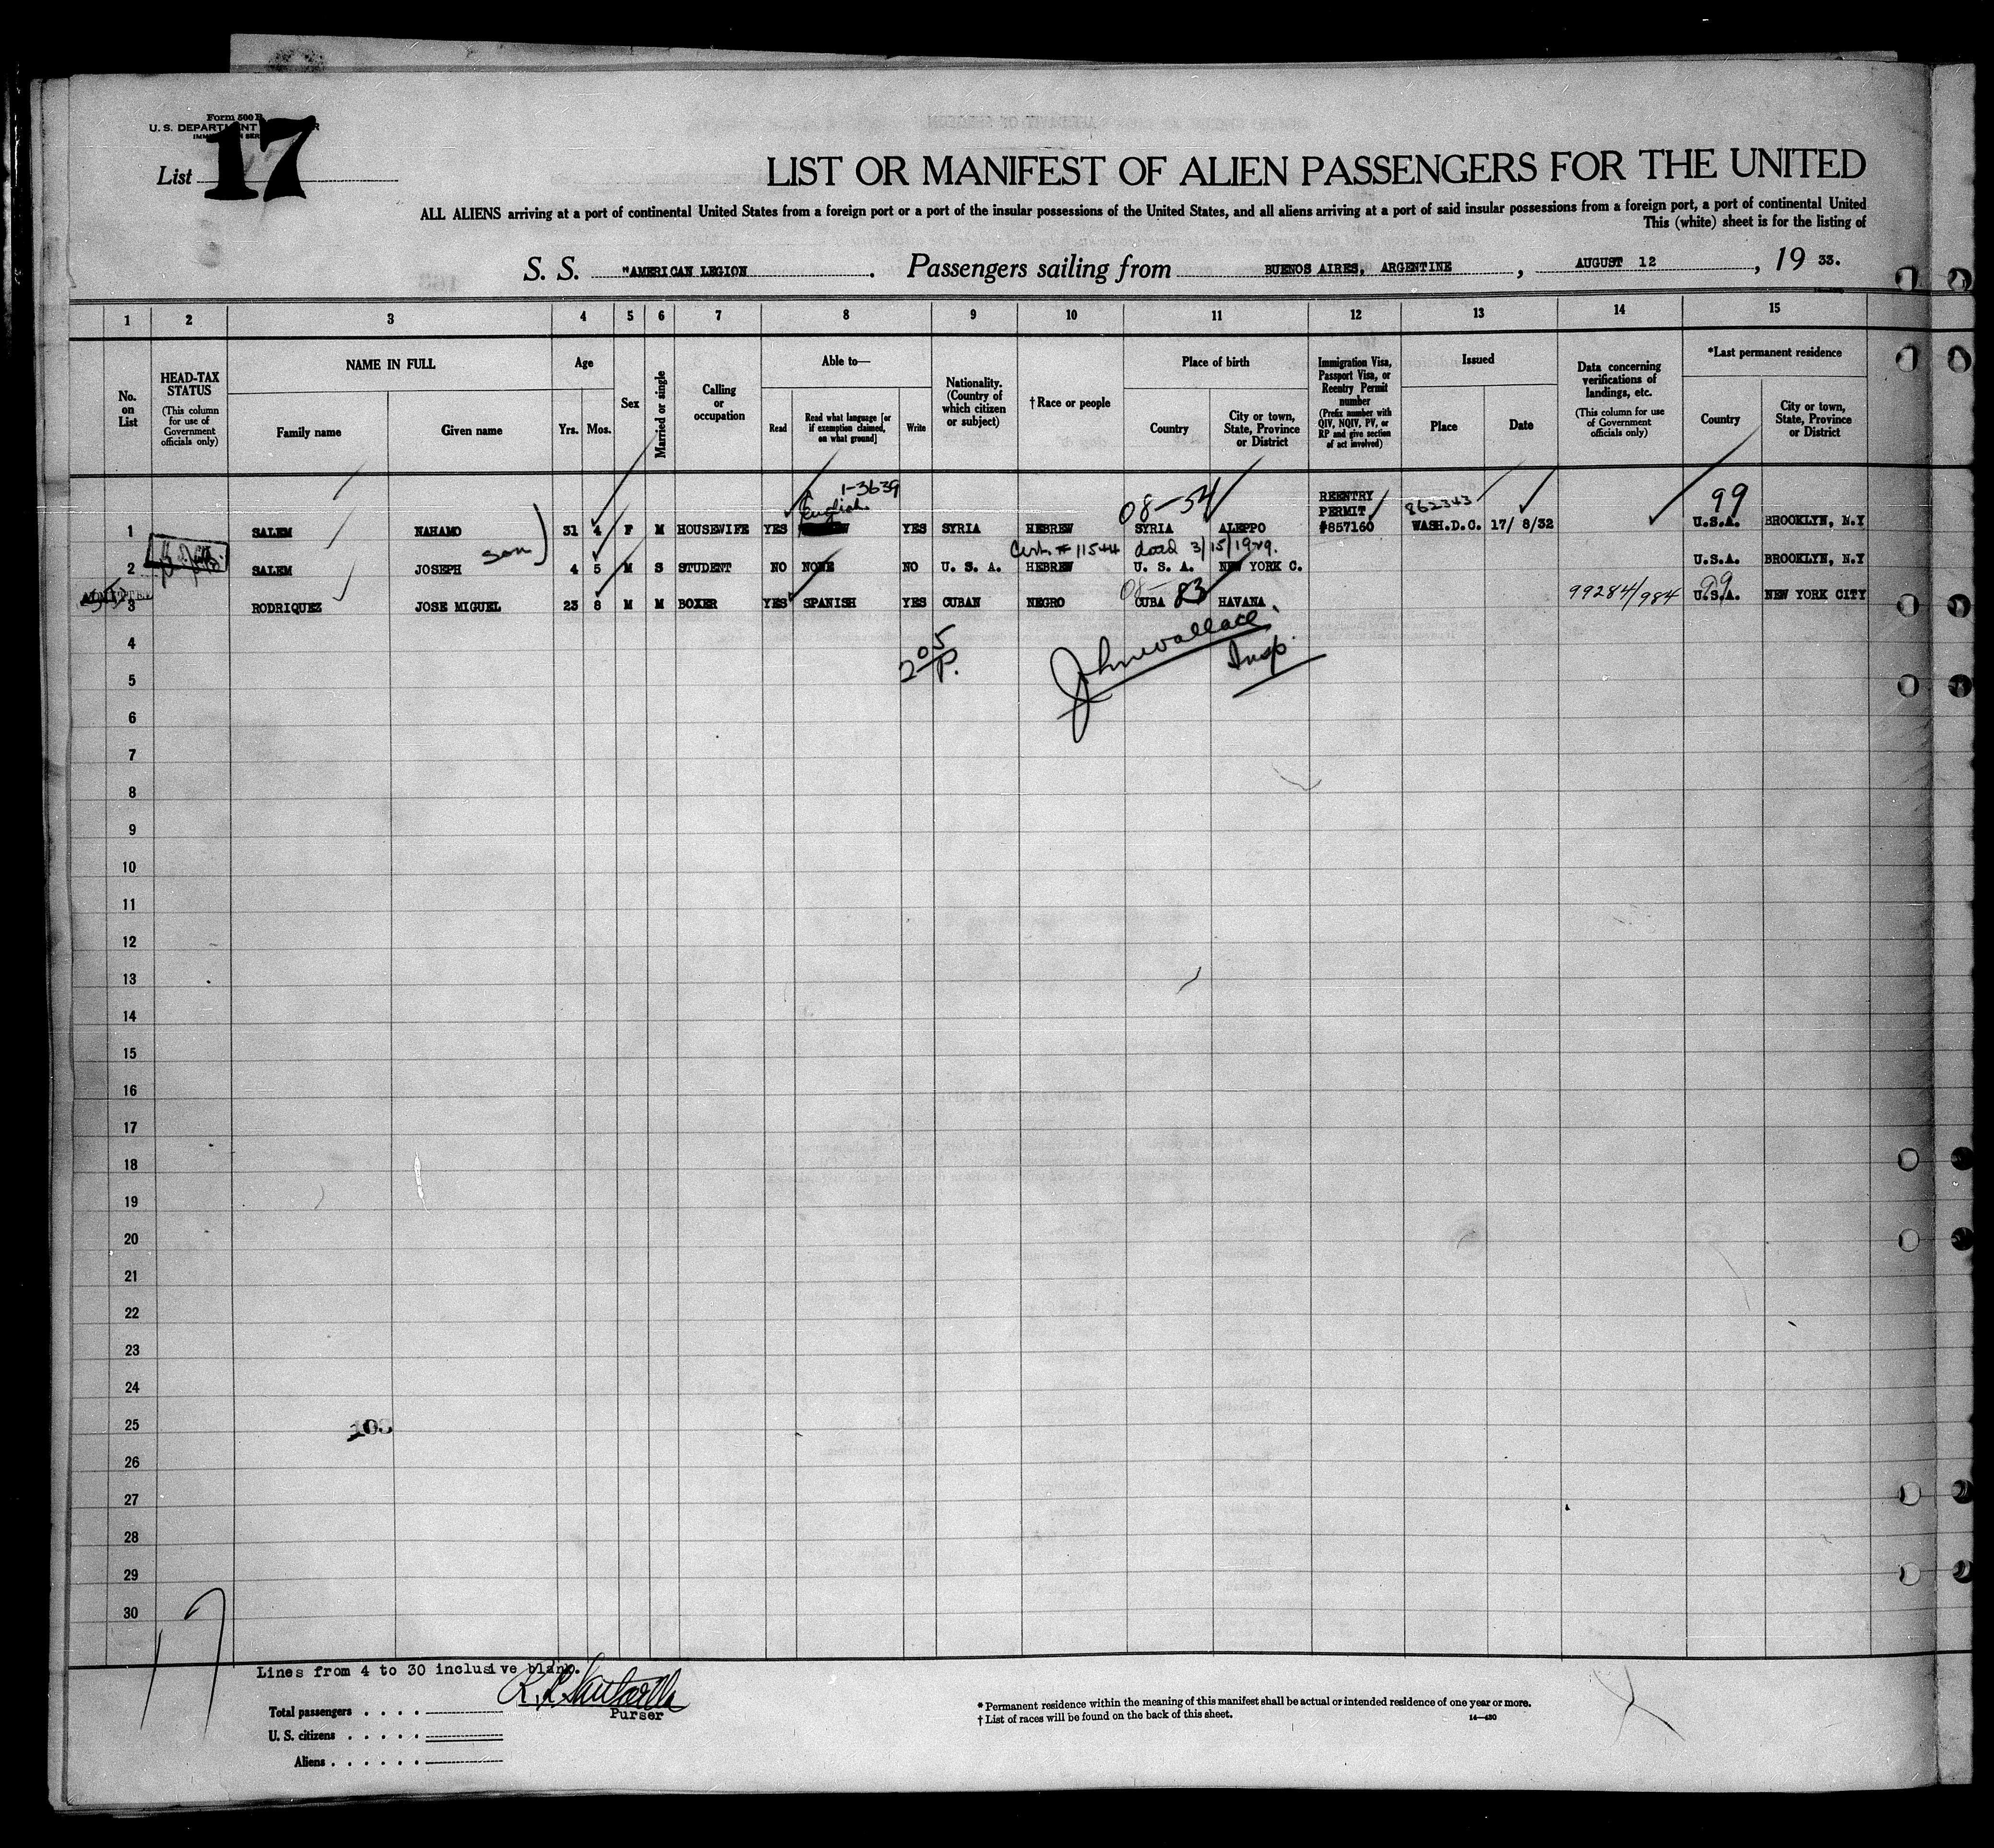 Form 500 B
U. S. DEPARTMENT
List 17
LIST OR MANIFEST OF ALIEN PASSENGERS FOR THE UNITED
ALL ALIENS arriving at a port of continental United States from a foreign port or a port of the insular possessions of the United States, and all aliens arriving at a port of said insular possessions from a foreign port, a port of continental United
This (white) sheet is for the listing of
S. S. "AMERICAN LEGION . Passengers sailing from BUENOS AIRES, ARGENTINE , AUGUST 12 , 19 33.
1 2 3 4 5 6 7 8 9 10 11 12 13 14 15
No. on List
HEAD-TAX STATUS
(This column for use of Government officials only)
NAME IN FULL
Family name Given name
Age
Yrs. Mos.
Sex
Married or single
Calling or occupation
Able to—
Read Read what language [or if exemption claimed, on what ground] Write
Nationality. (Country of which citizen or subject)
† Race or people
Place of birth
Country City or town, State, Province or District
Immigration Visa, Passport Visa, or Reentry Permit number
(Prefix number with QIV, NQIV, PV, or RP and give section of act involved)
Issued
Place Date
Data concerning verifications of landings, etc.
(This column for use of Government officials only)
*Last permanent residence
Country City or town, State, Province or District
1-3639
English 08-54 REENTRY PERMIT 862343 99
1 SALEM NAHAMO 31 4 F M HOUSEWIFE YES YES SYRIA HEBREW SYRIA ALEPPO #857160 WASH.D.C. 17/ 8/32 U.S.A. BROOKLYN, N.Y
son Cert. # 11544 dated 3/15/1929.
2 SALEM JOSEPH 4 5 M S STUDENT NO NONE NO U. S. A. HEBREW U. S. A. NEW YORK C. U.S.A. BROOKLYN, N.Y
ADMITTED 08- 83 99284/984 99
3 RODRIQUEZ JOSE MIGUEL 23 8 M M BOXER YES SPANISH YES CUBAN NEGRO CUBA HAVANA U.S.A. NEW YORK CITY
4
205 P. John Wallace Insp.
5
6
7
8
9
10
11
12
13
14
15
16
17
18
19
20
21
22
23
24
25
103
26
27
28
29
30
17
Lines from 4 to 30 inclusive blank.
Purser
Total passengers
U. S. citizens
Aliens
* Permanent residence within the meaning of this manifest shall be actual or intended residence of one year or more.
† List of races will be found on the back of this sheet. 14—430